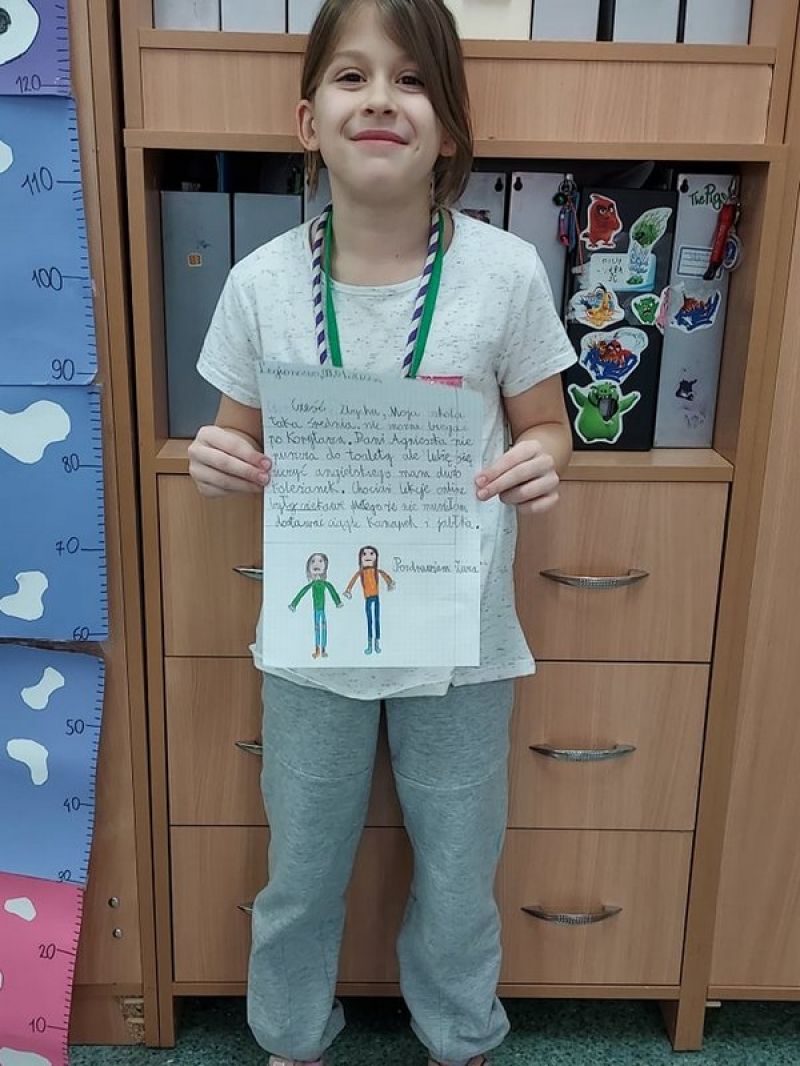 120
110
100
90
80
70
60
50
40
30
20
10
The Pigs
Cześć Zbychu, Moja szkoła
taka średnia. nie można biegać
po Korytarzu. Pani Agnieszka nie
puszcza do toalety ale lubię się
uczyć angielskiego mam dużo
Koleżanek. Chociaż lekcje online
były ciekawe dlatego że nie musiałam
dostawać ciągle Kanapek i jabłka.
Pozdrawiam Zuza